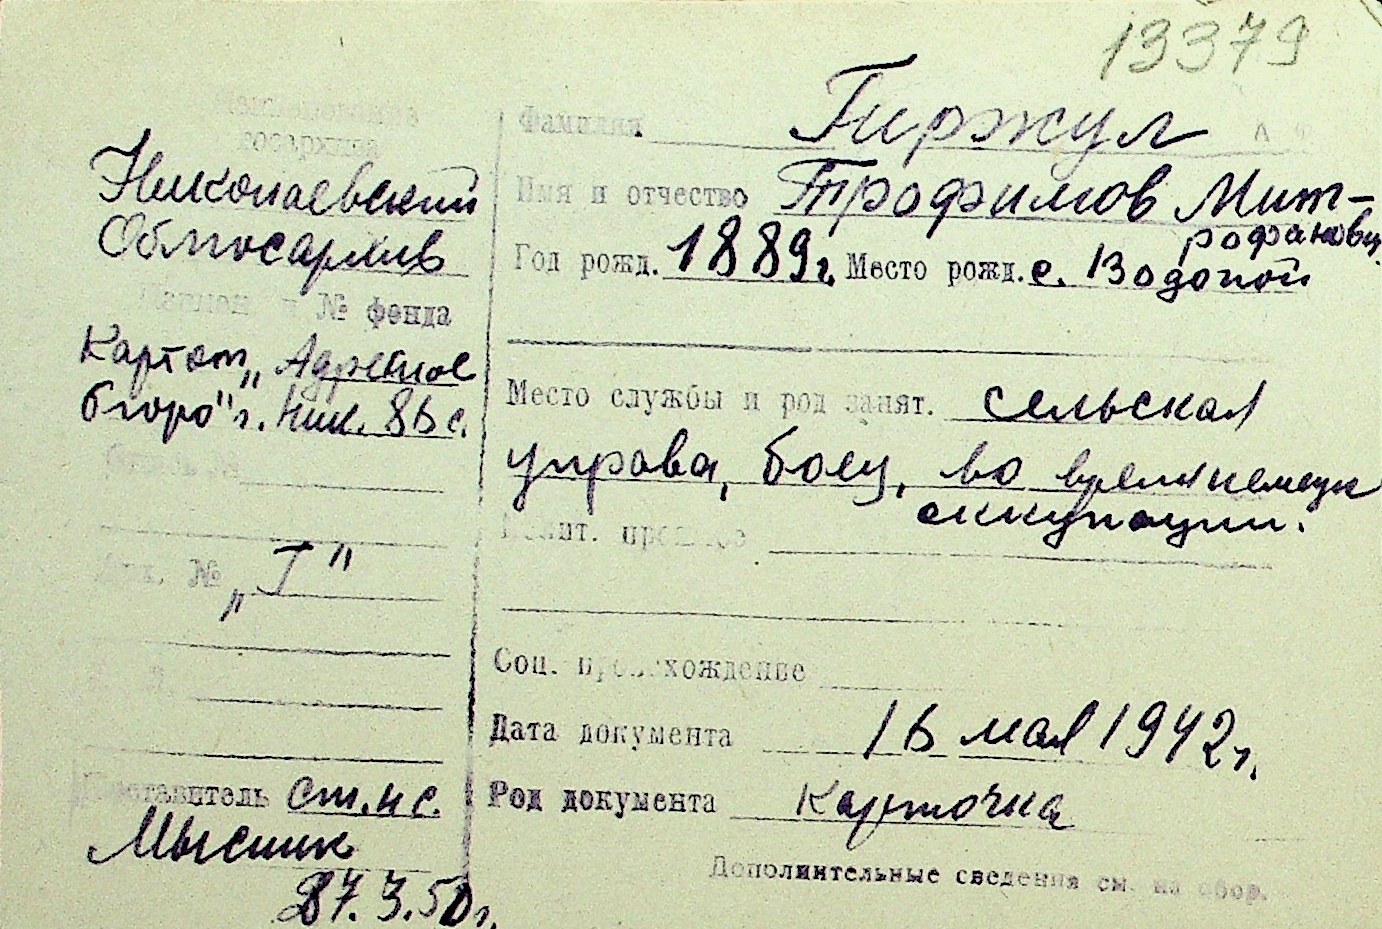 13379
Наименование
госархива
Николаевский
Облгосархив
Назван и № фонда
Картот. „Адресное
бюро" г. Ник. 8б с.
Опись №
„Т"
Составитель ст. н с.
Мысник
27.3.50г.
Фамилия Гиржул
Имя и отчество Трофимов Мит-
рофанович
Год рожд. 1889г. Место рожд. с. Водопой
Место службы и род занят. сельская
управа, боец, во время немецк
оккупации.
Полит. прошлое
Соц. происхождение
Дата документа 16 мая 1942г.
Род документа Карточка
Дополнительные сведения см. на обор.